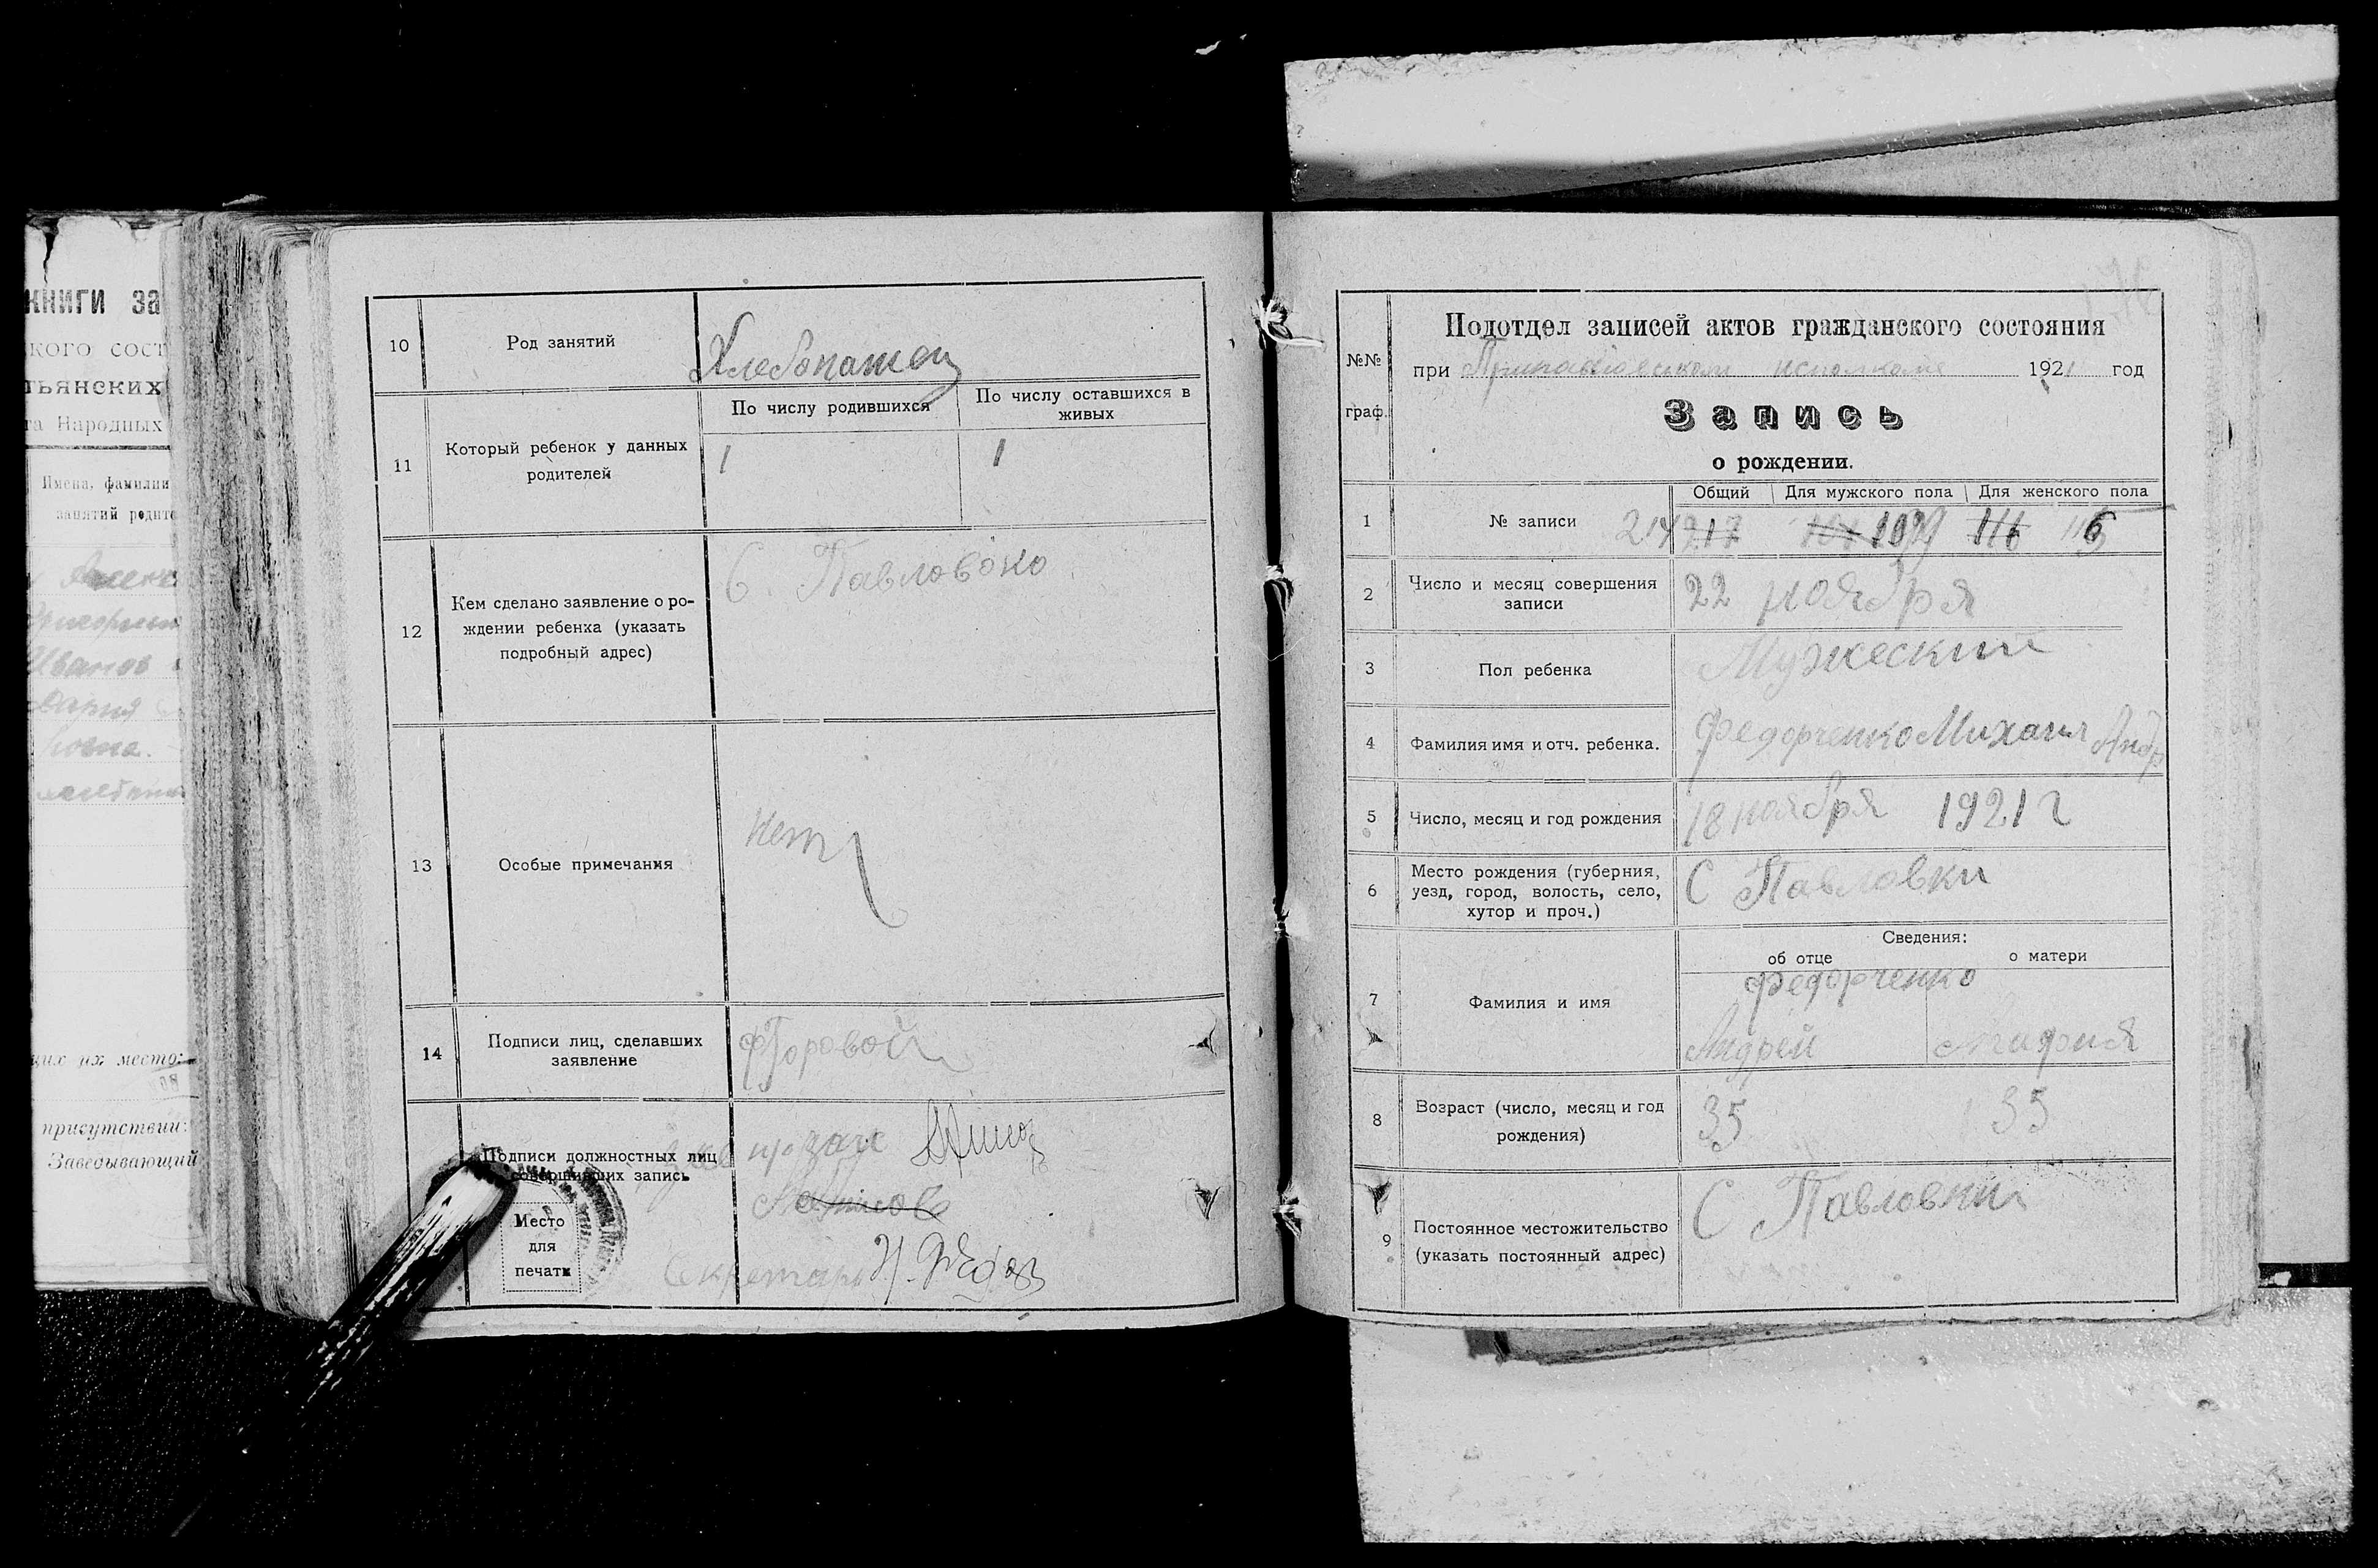 КНИГИ ЗА
КОГО СОСТ
ТЬЯНСКИХ
та Народных
Имена, фамилии
занятий родите
Иванов
Дария
щих их место:
присутствии:
Заведывающий
10
Род занятий
Хлебопашец
11
Который ребенок у данных
родителей
По числу родившихся
По числу оставшихся в
живых
1
1
12
Кем сделано заявление о ро-
ждении ребенка (указать
подробный адрес)
С. Павловоко
13
Особые примечания
нет
14
Подписи лиц, сделавших
заявление
Подписи должностных лиц
совершивших запись
Место
для
печати
Секретарь
№№
граф.
Подотдел записей актов гражданского состояния
при исполкоме 1921 год
Запись
о рождении.
Общий
Для мужского пола
Для женского пола
1
№ записи
214 217 109 116
2
Число и месяц совершения
записи
22 ноября
3
Пол ребенка
Мужеский
4
Фамилия имя и отч. ребенка.
Федорченко Михаил Андр
5
Число, месяц и год рождения
18 ноября 1921 г
6
Место рождения (губерния,
уезд, город, волость, село,
хутор и проч.)
С Павловки
Сведения:
об отце
о матери
7
Фамилия и имя
Федорченко
Андрей
8
Возраст (число, месяц и год
рождения)
35
35
9
Постоянное местожительство
(указать постоянный адрес)
С Павловки